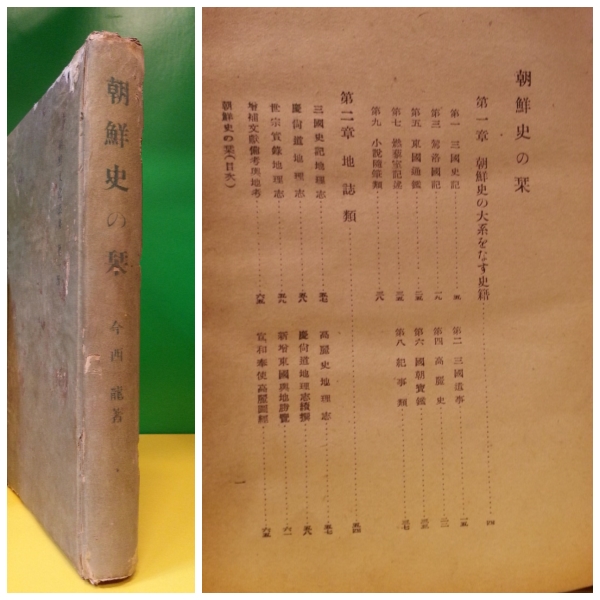 朝鮮史の栞
今西龍著
朝鮮史の栞
第一章 朝鮮史の大系をなす史籍 四
第一 三國史記
第二 三國遺事
第三 駕洛國記
第四 高麗史
第五 東國通鑑
第六 國朝寶鑑
第七
第八 紀事類
第九 小說隨筆類
第二章 地誌類 五四
三國史記地理志 五七
高麗史地理志 五七
慶尙道地理志 五八
慶尙道地理志續撰 五八
世宗實錄地理志 五九
新增東國輿地勝覽 六一
增補文獻備考輿地考 六五
宣和奉使高麗圖經 六五
朝鮮史の栞(目次)
一